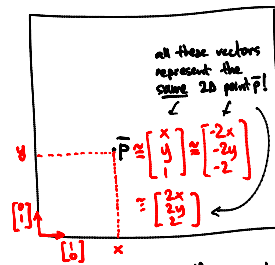 all these vectors
represent the
same 2D point p̄!
y
p̄ ≅ [x y 1] ≅ [-2x -2y -2]
≅ [2x 2y 2]
[0 1]
[1 0]
x